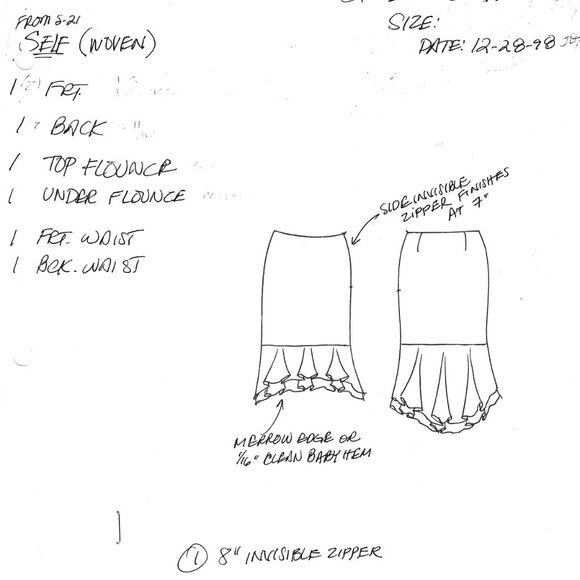 FROM S-21
SELF (WOVEN)
SIZE:
DATE: 12-28-98
1 FRT.
1 BACK
1 TOP FLOUNCE
1 UNDER FLOUNCE
1 FRT. WAIST
1 BCK. WAIST
SIDE INVISIBLE
ZIPPER FINISHES
AT 7"
MERROW EDGE OR
1/16" CLEAN BABY HEM
1 8" INVISIBLE ZIPPER